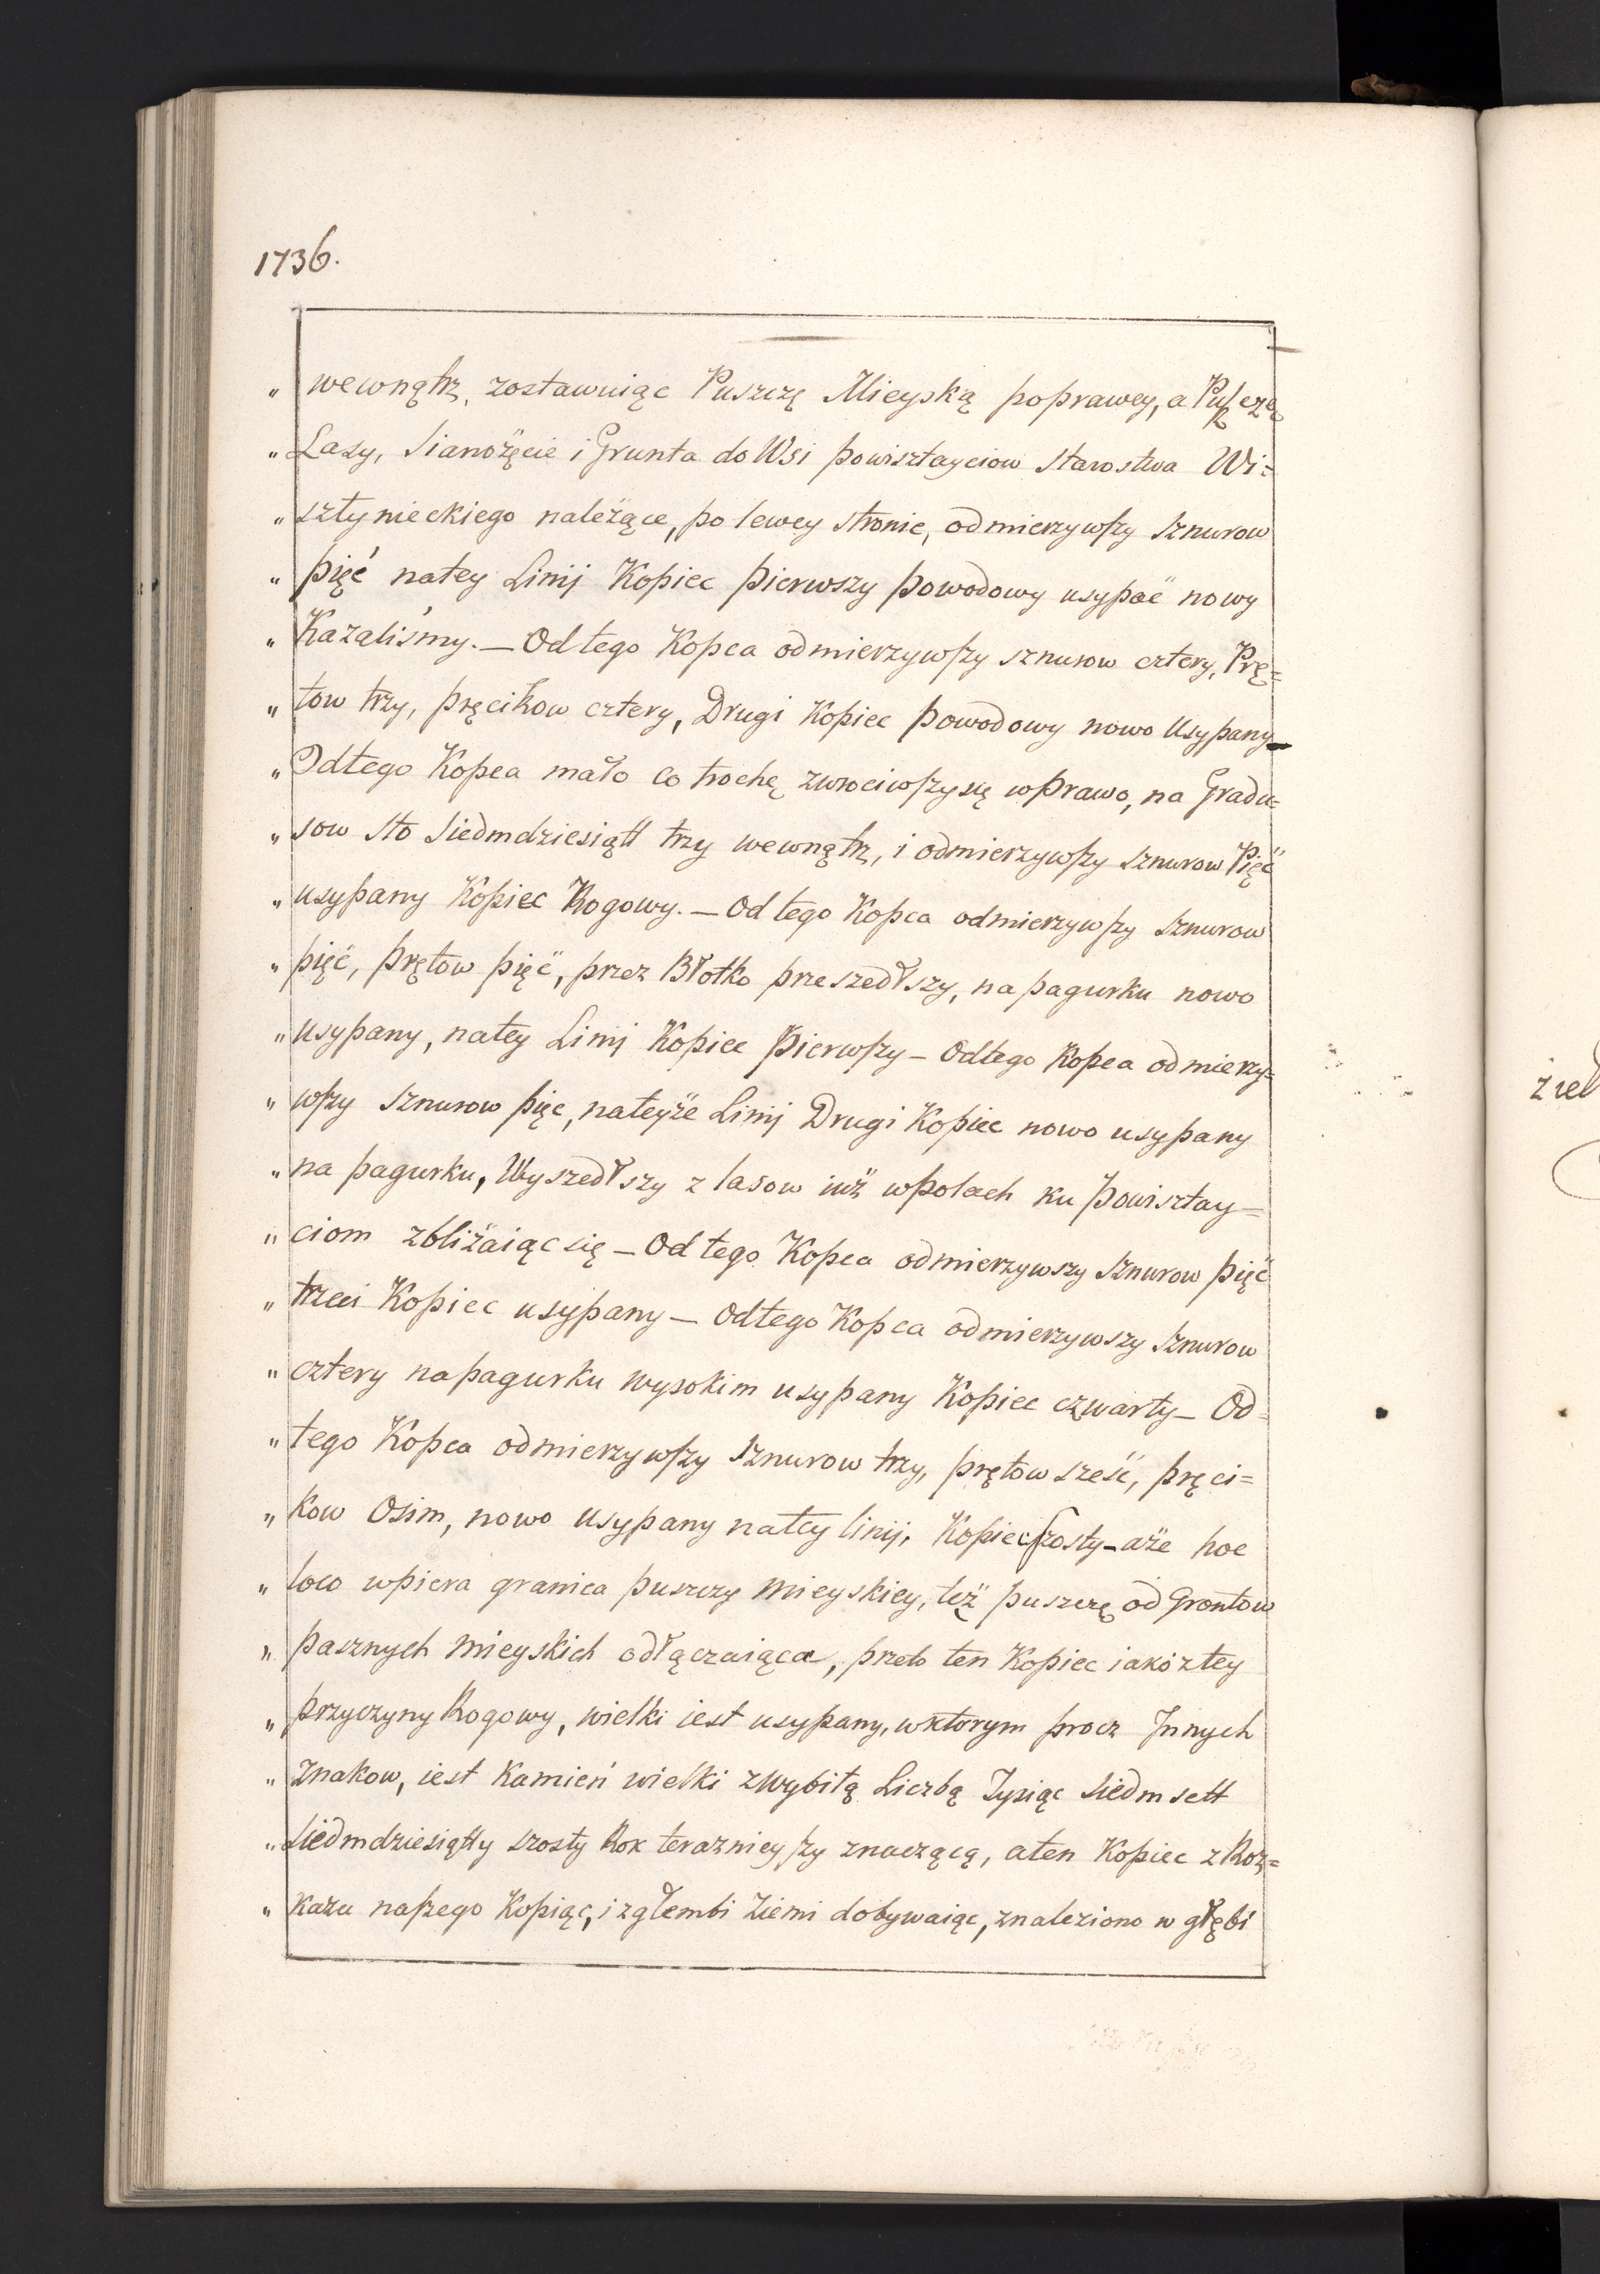 1736.
„ wewnątrz, zostawuiąc Puszczę Mieyską poprawey, a Puszczę
„ Lasy, Sianożęcie i Grunta do Wsi Powisztayciow Starostwa Wi=
„ sztynieckiego należące, po lewey stronie, odmierzywszy Sznurow
„ pięć natey Linij Kopiec pierwszy powodowy usypać nowy
„ Kazaliśmy. — Od tego Kopca odmierzywszy sznurow cztery, Prę=
„ tow trzy, pręcikow cztery, Drugi Kopiec powodowy nowo Usypany —
„ Odtego Kopca mało co trochę zwrociwszy się wprawo, na Gradu=
„ sow sto Siedmdziesiątt trzy wewnątrz, i odmierzywszy sznurow Pięć
„ usypany Kopiec Rogowy. — Od tego Kopca odmierzywszy Sznurow
„ pięć, prętow pięć, przez Błotko przeszedłszy, na pagurku nowo
„ usypany, natey Linij Kopiec Pierwszy — Odtego Kopca odmierzy=
„ wszy Sznurow pięc, nateyże Linij Drugi Kopiec nowo usypany
„ na pagurku, Wyszedłszy z lasow iuż wpolach ku Powisztay=
„ ciom zbliżaiąc się — Od tego Kopca odmierzywszy Sznurow pięć
„ trzeci Kopiec usypany — Odtego Kopca odmierzywszy Sznurow
„ cztery napagurku wysokim usypany Kopiec czwarty — Od=
„ tego Kopca odmierzywszy Sznurow trzy, prętow sześć, pręci=
„ kow Osim, nowo usypany natey linij, Kopiec szosty — aże hoc
„ loco wpiera granica puszczy mieyskiey, też puszczę od Grontow
„ pasznych mieyskich odłączaiąca, przeto ten Kopiec iako ztey
„ przyczyny Rogowy, wielki iest usypany, wktorym procz Jnnych
„ Znakow, iest Kamień wielki zwybitą Liczbą Tysiąc Siedmsett
„ Siedmdziesiątty szosty Rok teraznieyszy znaczącą, aten Kopiec z Roz=
„ kazu naszego Kopiąc, i zgłembi Ziemi dobywaiąc, znaleziono w głębi